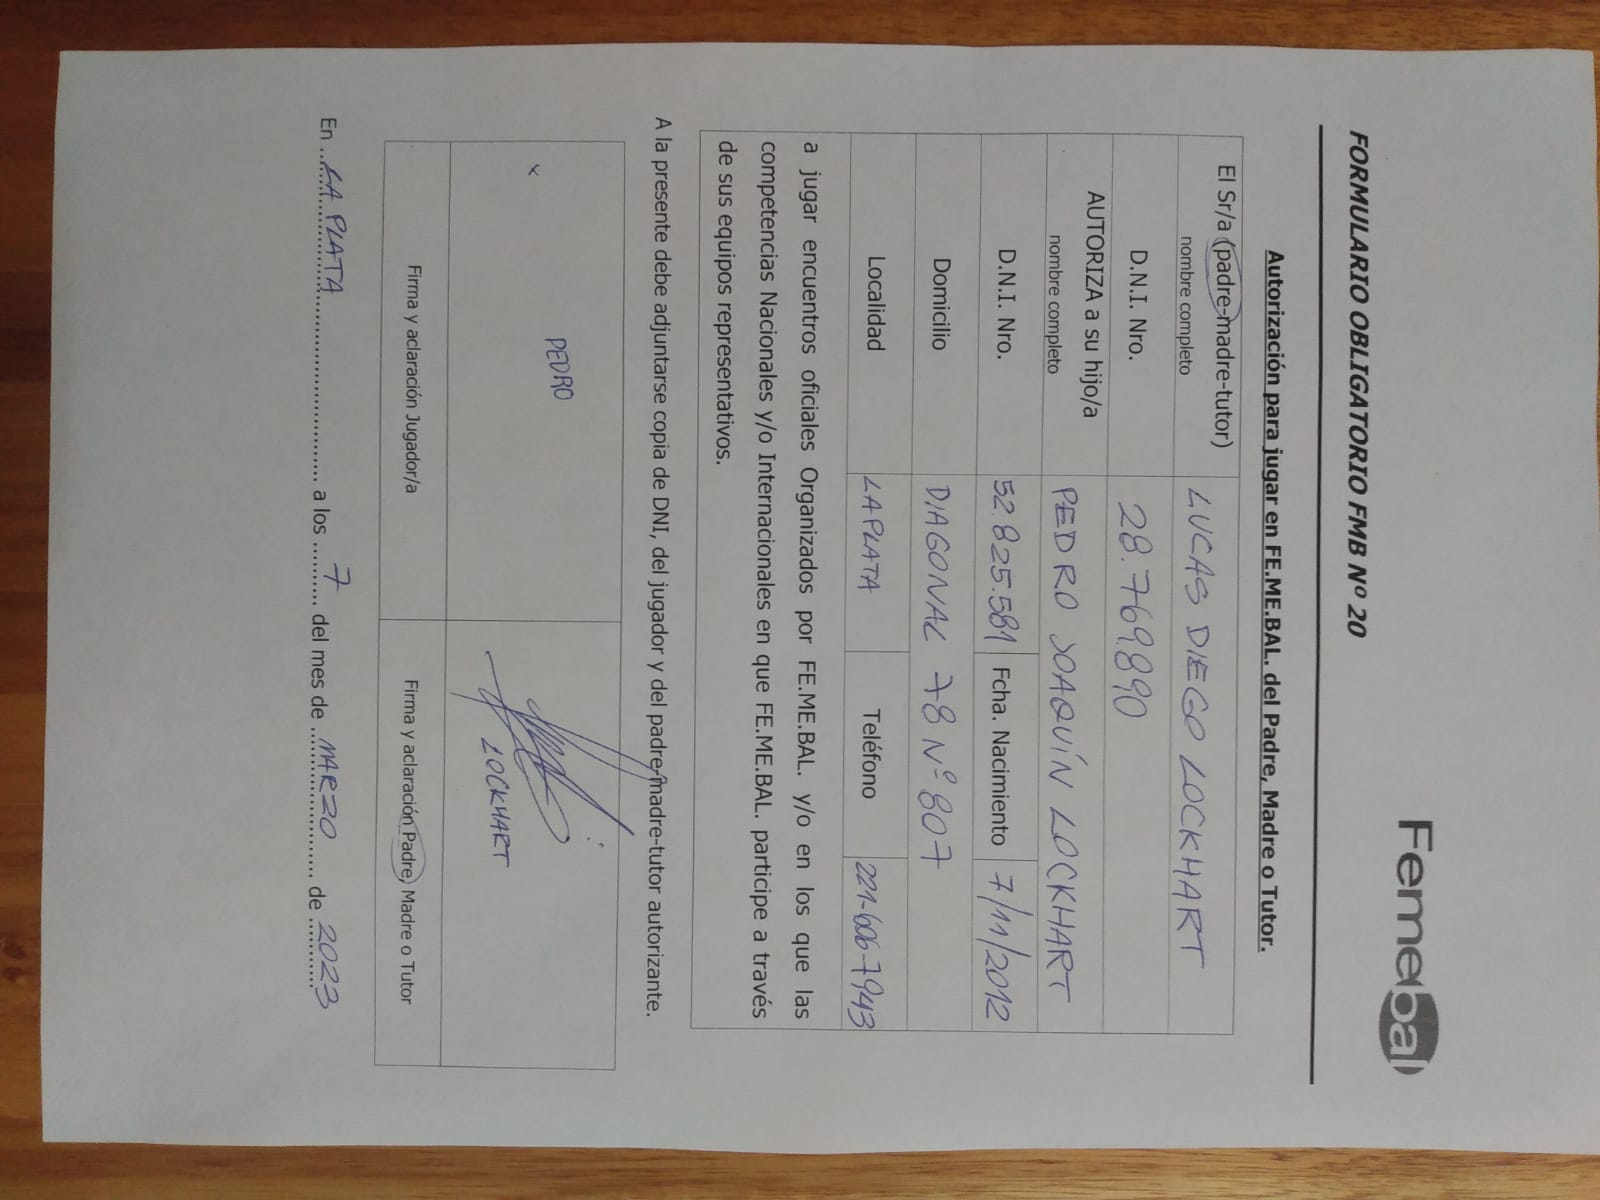 Femebal
FORMULARIO OBLIGATORIO FMB Nº 20
Autorización para jugar en FE.ME.BAL. del Padre, Madre o Tutor.
El Sr/a (padre-madre-tutor) LUCAS DIEGO LOCKHART
nombre completo
D.N.I. Nro. 28.769.890
AUTORIZA a su hijo/a PEDRO JOAQUÍN LOCKHART
nombre completo
D.N.I. Nro. 52.825.581 Fcha. Nacimiento 7/11/2012
Domicilio DIAGONAL 78 Nº 807
Localidad LA PLATA Teléfono 221-606-7943
a jugar encuentros oficiales Organizados por FE.ME.BAL. y/o en los que las
competencias Nacionales y/o Internacionales en que FE.ME.BAL. participe a través
de sus equipos representativos.
A la presente debe adjuntarse copia de DNI, del jugador y del padre-madre-tutor autorizante.
x PEDRO
LOCKHART
Firma y aclaración Jugador/a Firma y aclaración Padre, Madre o Tutor
En ..LA PLATA.............................. a los ....7...... del mes de ....MARZO............ de ..2023....